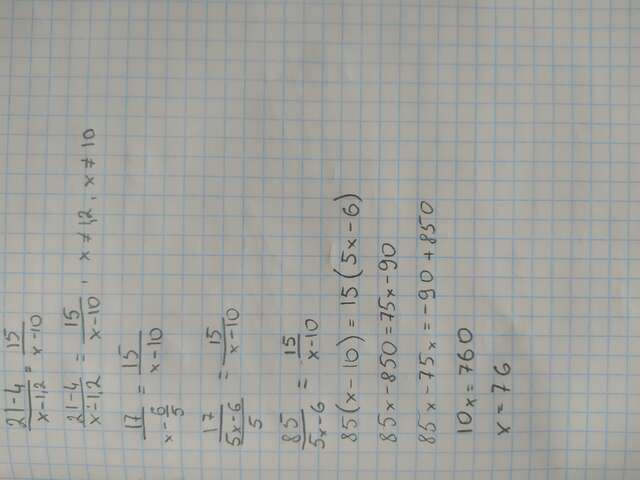 21-4/x-1,2 = 15/x-10
21-4/x-1,2 = 15/x-10, x≠1,2, x≠10
17/x-6/5 = 15/x-10
17/5x-6/5 = 15/x-10
85/5x-6 = 15/x-10
85(x-10)=15(5x-6)
85x-850=75x-90
85x-75x=-90+850
10x=760
x=76